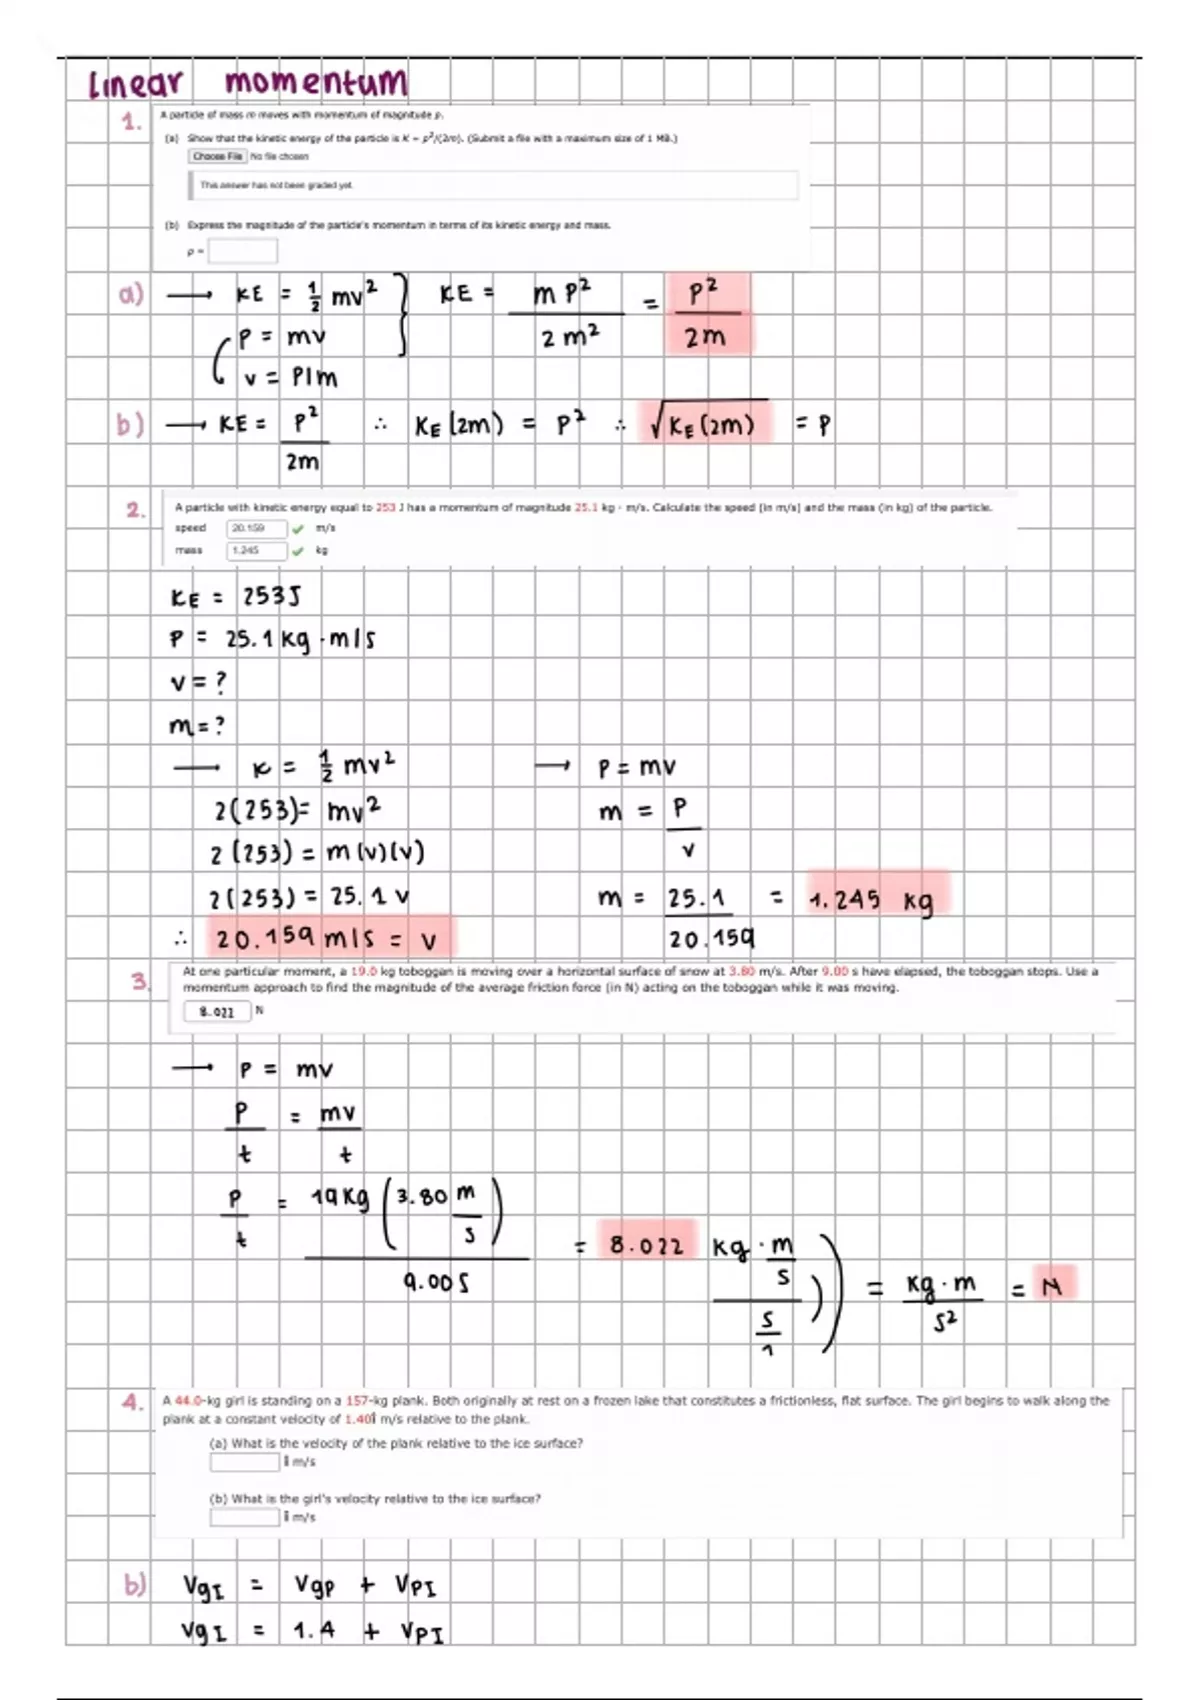 linear momentum
1. A particle of mass m moves with momentum of magnitude p.
(a) Show that the kinetic energy of the particle is K = p²/(2m). (Submit a file with a maximum size of 1 MB.)
Choose File No file chosen
This answer has not been graded yet.
(b) Express the magnitude of the particle's momentum in terms of its kinetic energy and mass.
p =
a) → KE = 1/2 mv² } KE = m P² / 2 m² = P² / 2m
P = mv
v = P/m
b) → KE = P² / 2m ∴ KE (2m) = P² ∴ √KE (2m) = P
2. A particle with kinetic energy equal to 253 J has a momentum of magnitude 25.1 kg · m/s. Calculate the speed (in m/s) and the mass (in kg) of the particle.
speed 20.159 ✓ m/s
mass 1.245 ✓ kg
KE = 253J
P = 25.1 kg · m/s
v = ?
m = ?
→ K = 1/2 mv² → P = mv
2(253) = mv² m = P / v
2(253) = m(v)(v)
2(253) = 25.1 v m = 25.1 / 20.159 = 1.245 kg
∴ 20.159 m/s = v
3. At one particular moment, a 19.0 kg toboggan is moving over a horizontal surface of snow at 3.80 m/s. After 9.00 s have elapsed, the toboggan stops. Use a
momentum approach to find the magnitude of the average friction force (in N) acting on the toboggan while it was moving.
8.022 N
→ P = mv
P / t = mv / t
P / t = 19kg (3.80 m / s) / 9.00s = 8.022 kg · m / s / s / 1 )) = kg · m / s² = N
4. A 44.0-kg girl is standing on a 157-kg plank. Both originally at rest on a frozen lake that constitutes a frictionless, flat surface. The girl begins to walk along the
plank at a constant velocity of 1.40î m/s relative to the plank.
(a) What is the velocity of the plank relative to the ice surface?
î m/s
(b) What is the girl's velocity relative to the ice surface?
î m/s
b) VgI = VgP + VPI
VgI = 1.4 + VPI